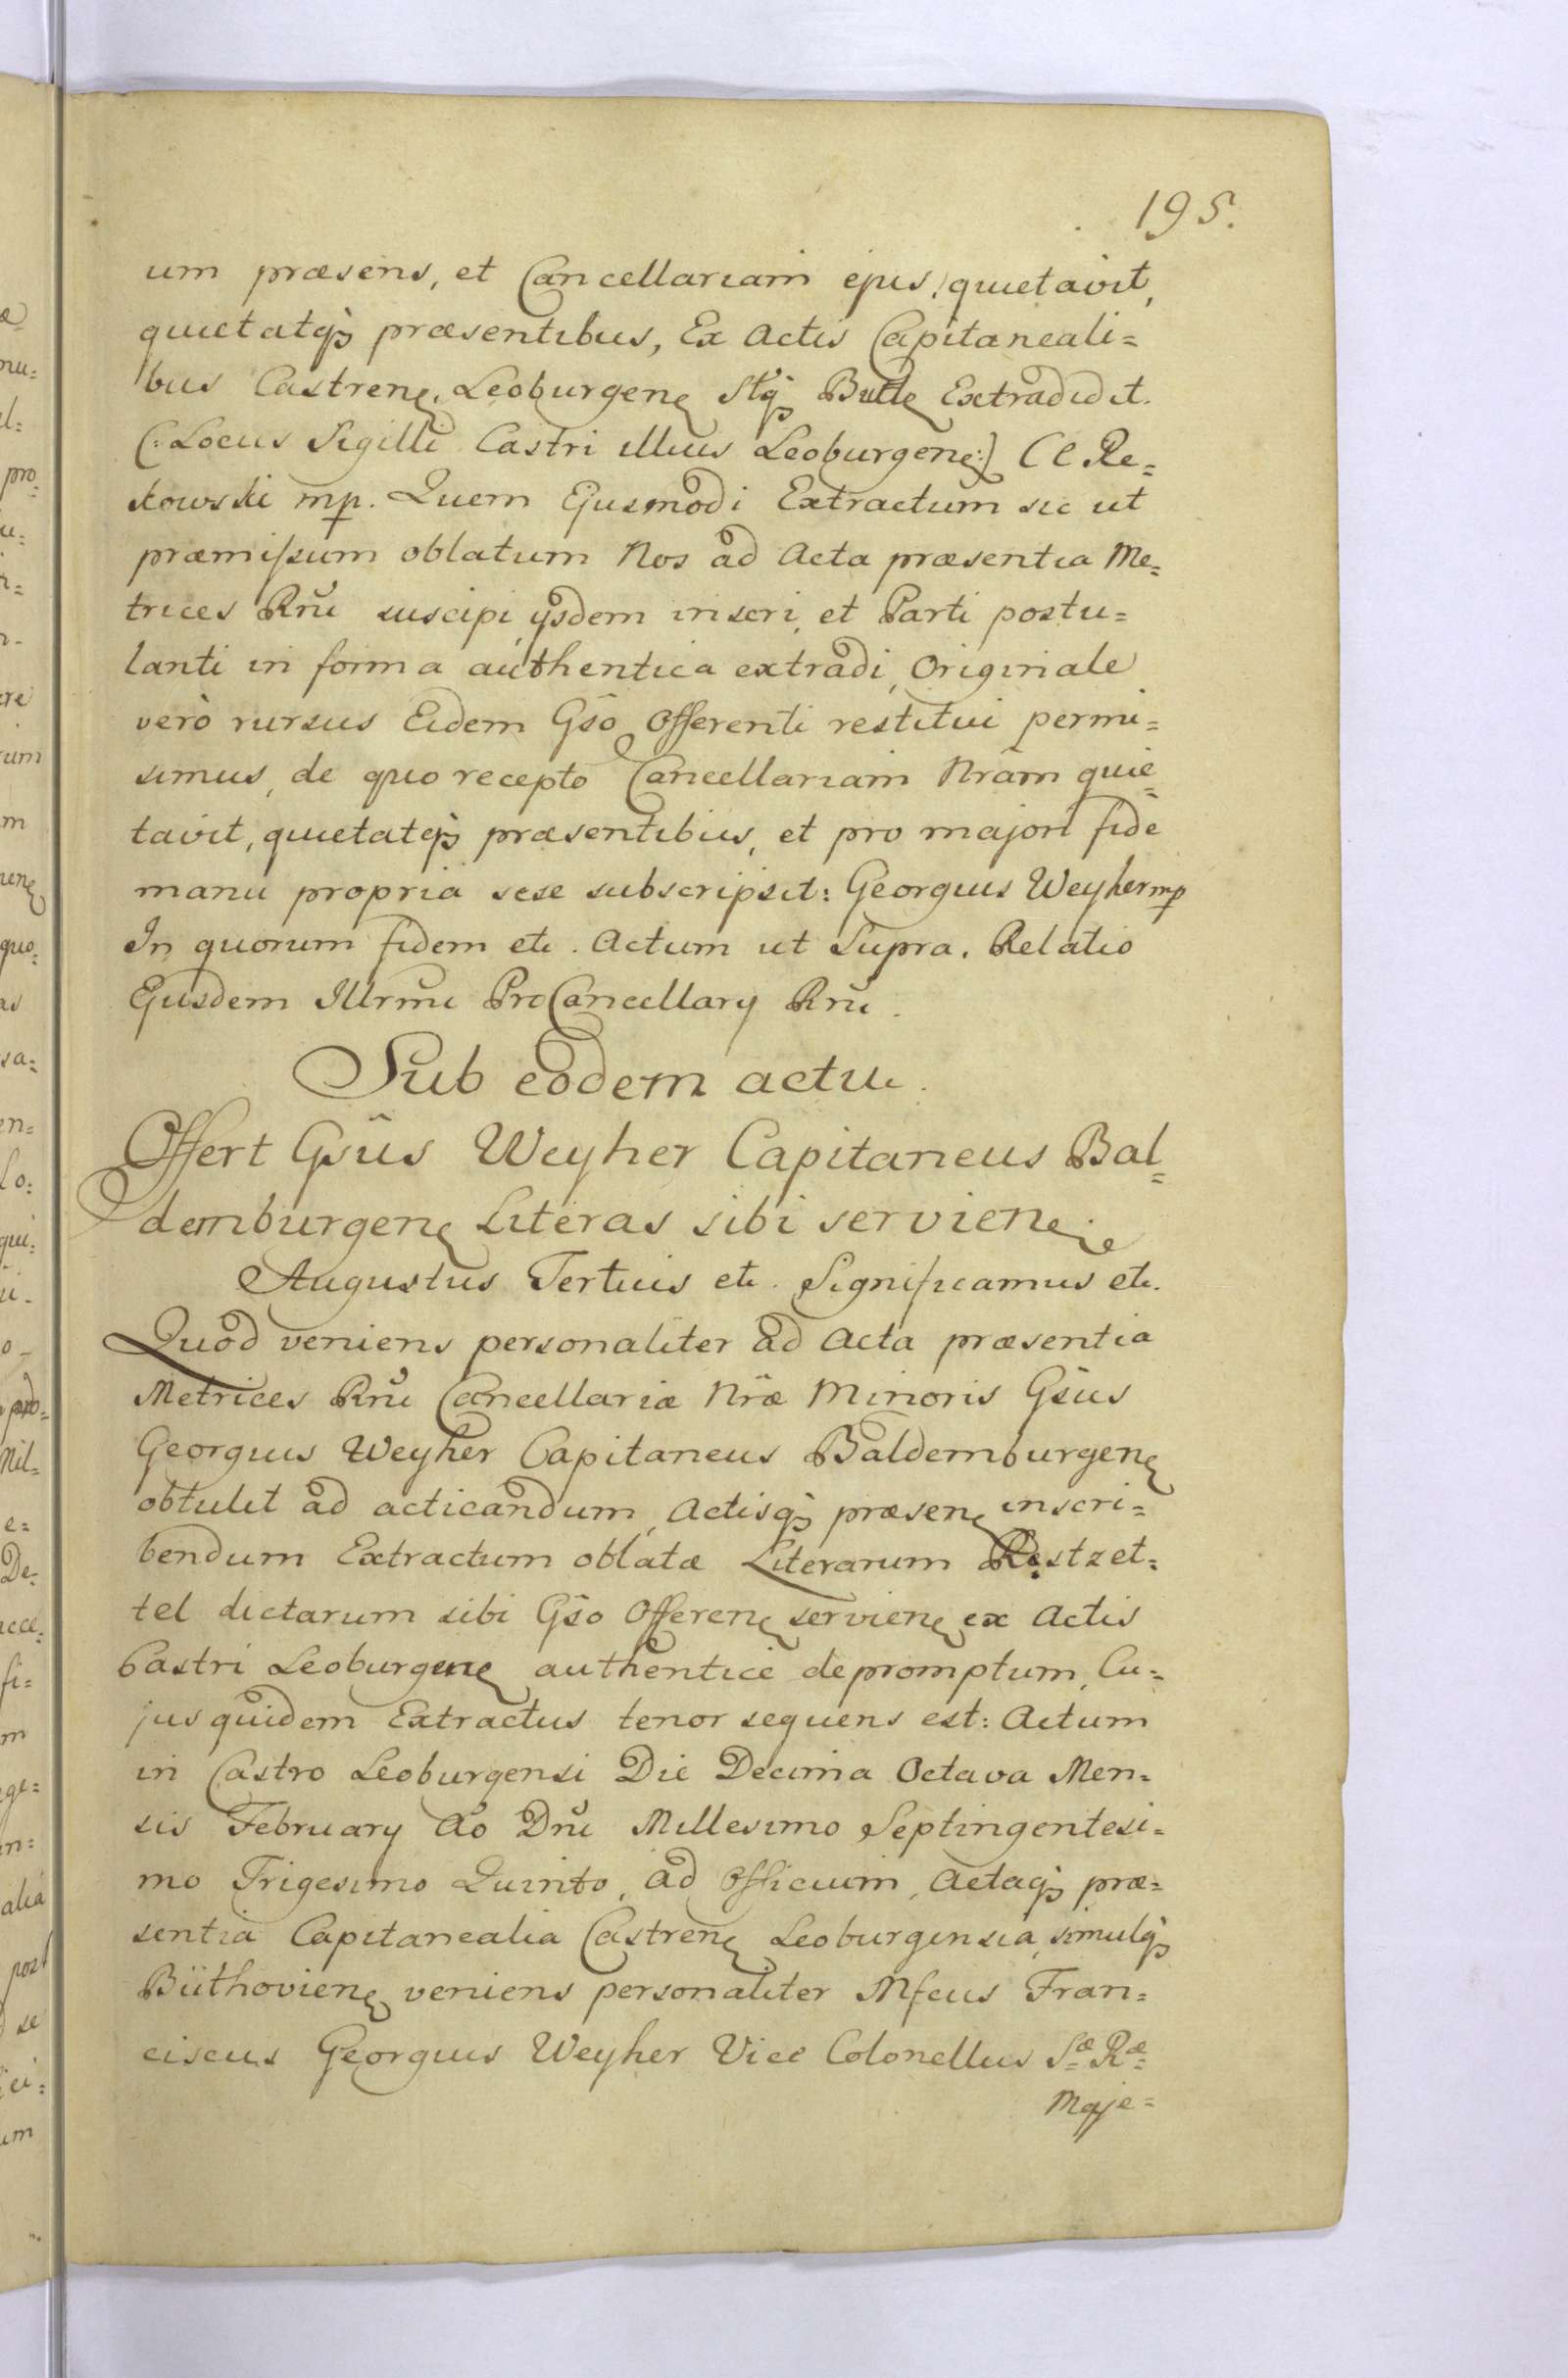 195.
um præsens, et Cancellariam ejus, quietavit,
quietatq; præsentibus, Ex Actis Capitaneali=
bus Castren. Leoburgen Stq; Butt Extradidit.
(: Locus Sigilli Castri illius Leoburgen:) C C Re=
kowski mp. Quem Ejusmodi Extractum sic ut
præmissum oblatum Nos ad Acta præsentia Me=
trices Rñi suscipi, ijsdem inscri, et Parti postu=
lanti in forma authentica extradi, Originale
verò rursus Eidem Gso Offerenti restitui permi=
simus, de quo recepto Cancellariam Nram quie=
tavit, quietatq; præsentibus, et pro majori fide
manu propria sese subscripsit: Georgius Weyher mp
In quorum fidem etc. Actum ut Supra. Relatio
Ejusdem Illrmi ProCancellarij Rñi.
Sub eodem actu.
Offert Gsus Weyher Capitaneus Bal=
demburgen Literas sibi servien.
Augustus Tertius etc. Significamus etc.
Quod veniens personaliter ad Acta præsentia
Metrices Rñi Cancellariæ Nræ Minoris Gsus
Georgius Weyher Capitaneus Baldemburgen
obtulit ad acticandum, Actisq; præsen inscri=
bendum Extractum oblatæ Literarum Restzet=
tel dictarum sibi Gso Offeren servien ex Actis
Castri Leoburgen authenticè depromptum, Cu=
jus quidem Extractus tenor sequens est: Actum
in Castro Leoburgensi Die Decima Octava Men=
sis Februarij Ao Dni Millesimo Septingentesi=
mo Trigesimo Quinto, ad Officium, Actaq; præ=
sentia Capitanealia Castren Leoburgensia, simulq;
Büthovien veniens personaliter Mfcus Fran=
ciscus Georgius Weyher Vice Colonellus Sæ Ræ
Maje=